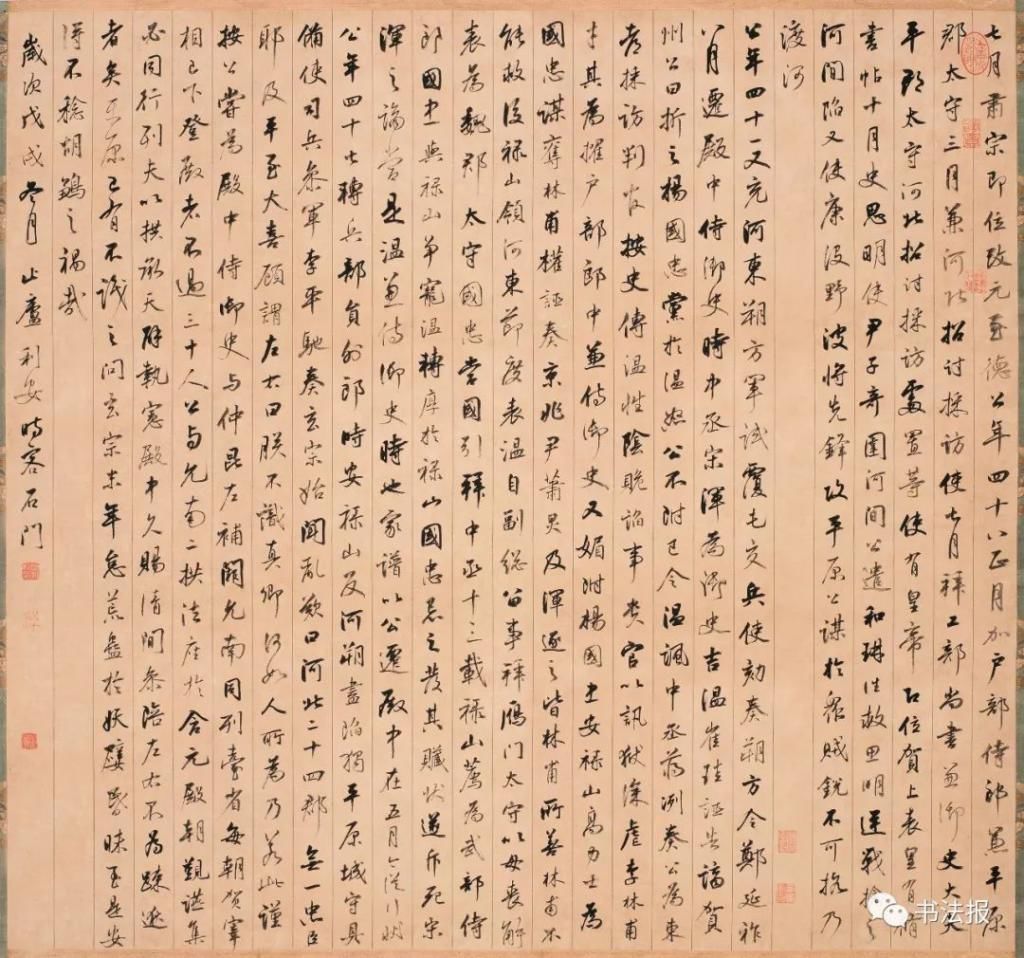 七月肃宗即位改元至德公年四十八正月加户部侍郎兼平原
郡太守三月兼河北招讨採访使七月拜工部尚書兼御史大夫
平郡太守河北招讨採访處置等使有皇帝即位賀上表皇有
書帖十月史思明使尹子奇圍河間公遣和琳往救思明逆戰擒之
河間陷又使康沒野波将先鋒攻平原公謀於众賊銳不可抗乃
渡河
公年四十一又充河東朔方軍試覆屯交兵使劾奏朔方令鄭延祚
八月遷殿中侍御史時中丞宋渾為御史吉温崔珪誣告谪賀
州公曰折之楊國忠黨於温怒公不附己令温諷中丞蒋洌奏公為東
都採访判官按史傳温性陰䛕諂事貴官以訊獄深虐李林甫
才其為擢户部郎中兼侍御史又媚附楊國忠安禄山高力士為
國忠謀奪林甫權誣奏京兆尹萧炅及渾逐之皆林甫所善林甫不
能救后禄山領河東節度表温自副総留事拜雁门太守以母丧解
表為魏郡太守國忠當國引拜中丞十三載禄山薦為武部侍
郎國忠與禄山争寵温轉厚於禄山國忠忌之发其贓状遂斥死宋
渾之谪當是温兼侍御史時也家譜以公遷殿中在五月
公年四十七轉兵部員外郎時安禄山反河朔盡陷獨平原城守具
俻使司兵参軍李平馳奏玄宗始聞亂歎曰河北二十四郡無一忠臣
耶及平至大喜顧謂左右曰朕不識真卿何如人所為乃若此謹
按公嘗為殿中侍御史与仲昆左補闕允南同列臺省每朝賀宰
相已下登殿者不過三十人公与允南二拱法座於含元殿朝觀讌集
必同行列夫以拱承天辟執憲殿中久赐清閒参陪左右不為疎逖
者矣平原已有不識之问玄宗末年怠荒蠱於妖孽昏昧至是安
得不稔胡鷄之禍哉
歲次戊戌冬月止廬利安時客石門
书法报